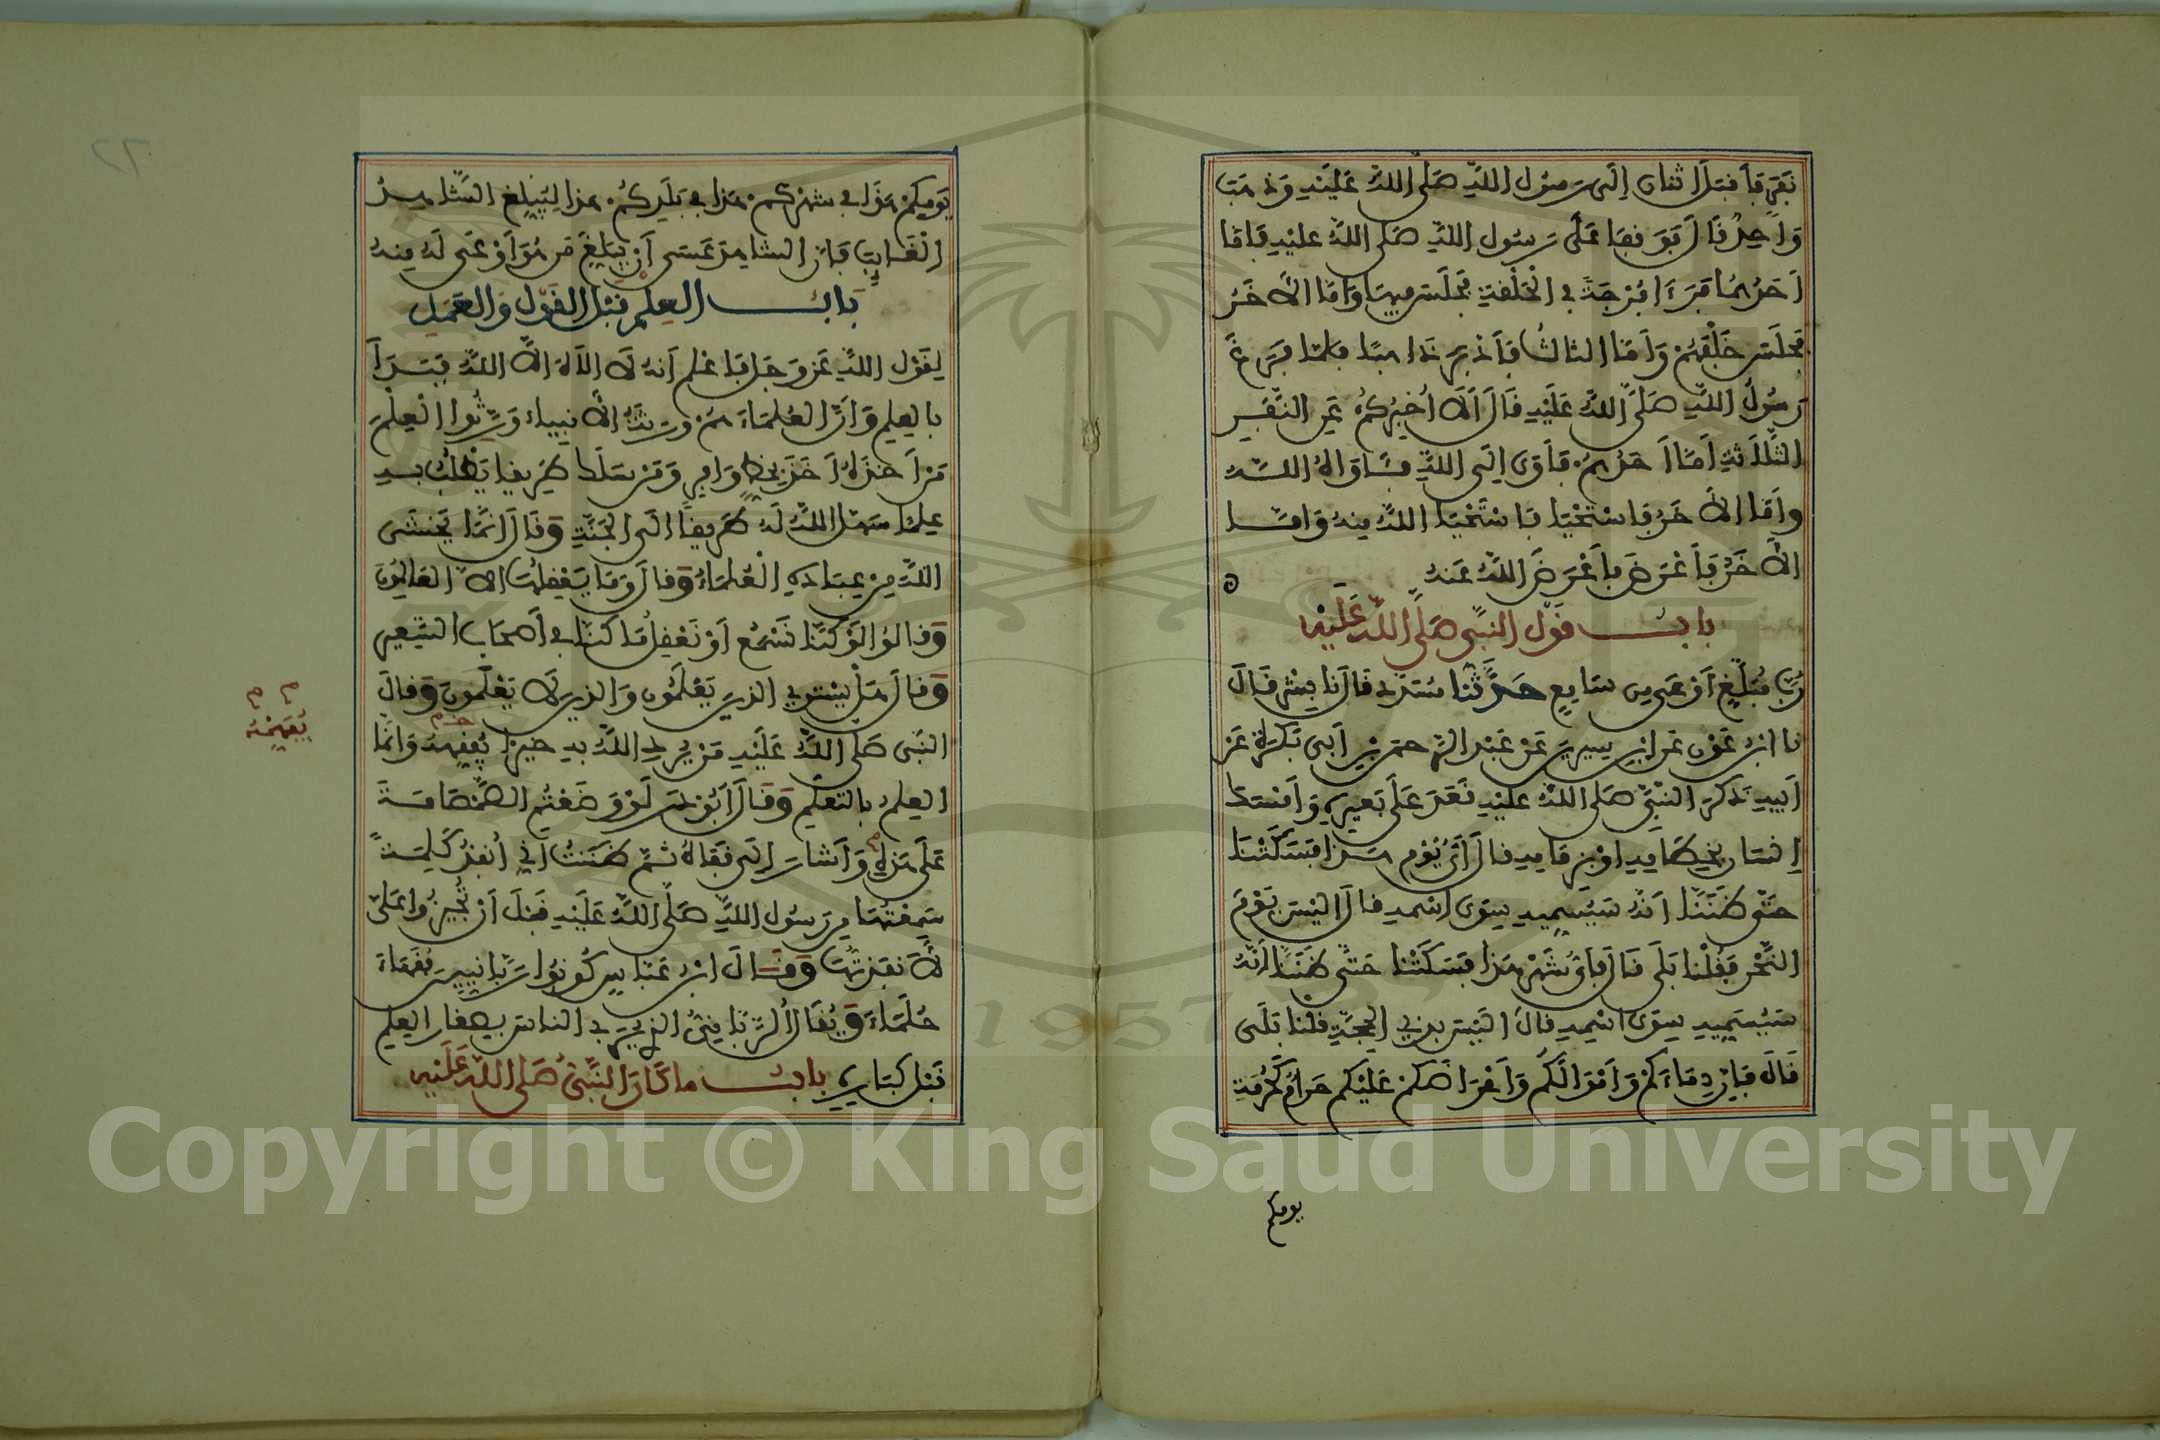 نفر فأقبل اثنان إلى رسول الله صلى الله عليه وذهب
واحد قال فوقفا على رسول الله صلى الله عليه فأما
أحدهما فرءا فرجة في الحلقة فجلس فيها وأما الآخر
فجلس خلفهم وأما الثالث فأدبر ذاهبا فلما فرغ
رسول الله صلى الله عليه قال ألا أخبركم عن النفر
الثلاثة أما أحدهم فأوى إلى الله فئاواه الله
وأما الآخر فاستحيا فاستحيا الله منه وأما
الآخر فأعرض فأعرض الله عنه
باب قول النبي صلى الله عليه
رب مبلغ أوعى من سامع حدثنا مسدد قال نا بشر قال
نا ابن عون عن ابن سيرين عن عبد الرحمن بن أبي بكرة عن
أبيه ذكر النبي صلى الله عليه قعد على بعيره وأمسك
إنسان بخطامه أو بزمامه قال أي يوم هذا فسكتنا
حتى ظننا أنه سيسميه سوى اسمه قال أليس يوم
النحر فقلنا بلى قال فأي شهر هذا فسكتنا حتى ظننا أنه
سيسميه سوى اسمه قال أليس بذي الحجة قلنا بلى
قال فإن دماءكم وأموالكم وأعراضكم عليكم حرام كحرمة
يومكم
٦٢
يومكم هذا في شهركم هذا في بلدكم هذا ليبلغ الشاهد
الغائب فإن الشاهد عسى أن يبلغ من هو أوعى له منه
باب العلم قبل القول والعمل
لقول الله عز وجل فاعلم أنه لا إلاه إلا الله فبدأ
بالعلم وأن العلماء هم ورثة الأنبياء ورثوا العلم
من أخذه أخذ بحظ وافر ومن سلك طريقا يطلب به
علما سهل الله له طريقا إلى الجنة وقال إنما يخشى
الله من عباده العلماء وقال وما يعقلها إلا العالمون
وقالوا لو كنا نسمع أو نعقل ما كنا في أصحاب السعير
وقال هل يستوي الذين يعلمون والذين لا يعلمون وقال
النبي صلى الله عليه من يرد الله به خيرا يفقهه وإنما
يفهمه
العلم بالتعلم وقال أبو ذر لو وضعتم الصمصامة
على هذه وأشار إلى قفاه ثم ظننت أني أنفذ كلمة
سمعتها من رسول الله صلى الله عليه قبل أن تجيزوا علي
لأنفذتها وقال ابن عباس كونوا ربانيين فقهاء
حلماء ويقال الرباني الذي يربي الناس بصغار العلم
قبل كباره باب ما كان النبي صلى الله عليه
Copyright © King Saud University
1957